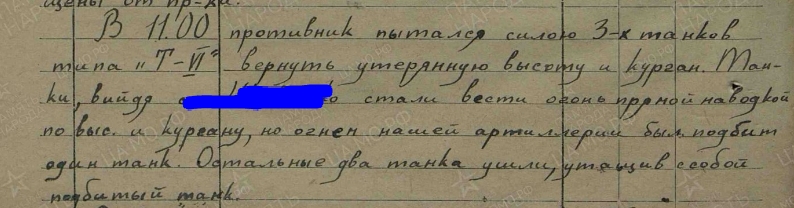 щены от пр-ка.
В 11.00 противник пытался силою 3-х танков
типа „Т-VI" вернуть утерянную высоту и курган. Тан-
ки, выйдя стали вести огонь прямой наводкой
по выс. и кургану, но огнем нашей артиллерии был подбит
один танк. Остальные два танка ушли, утащив с собой
подбитый танк.